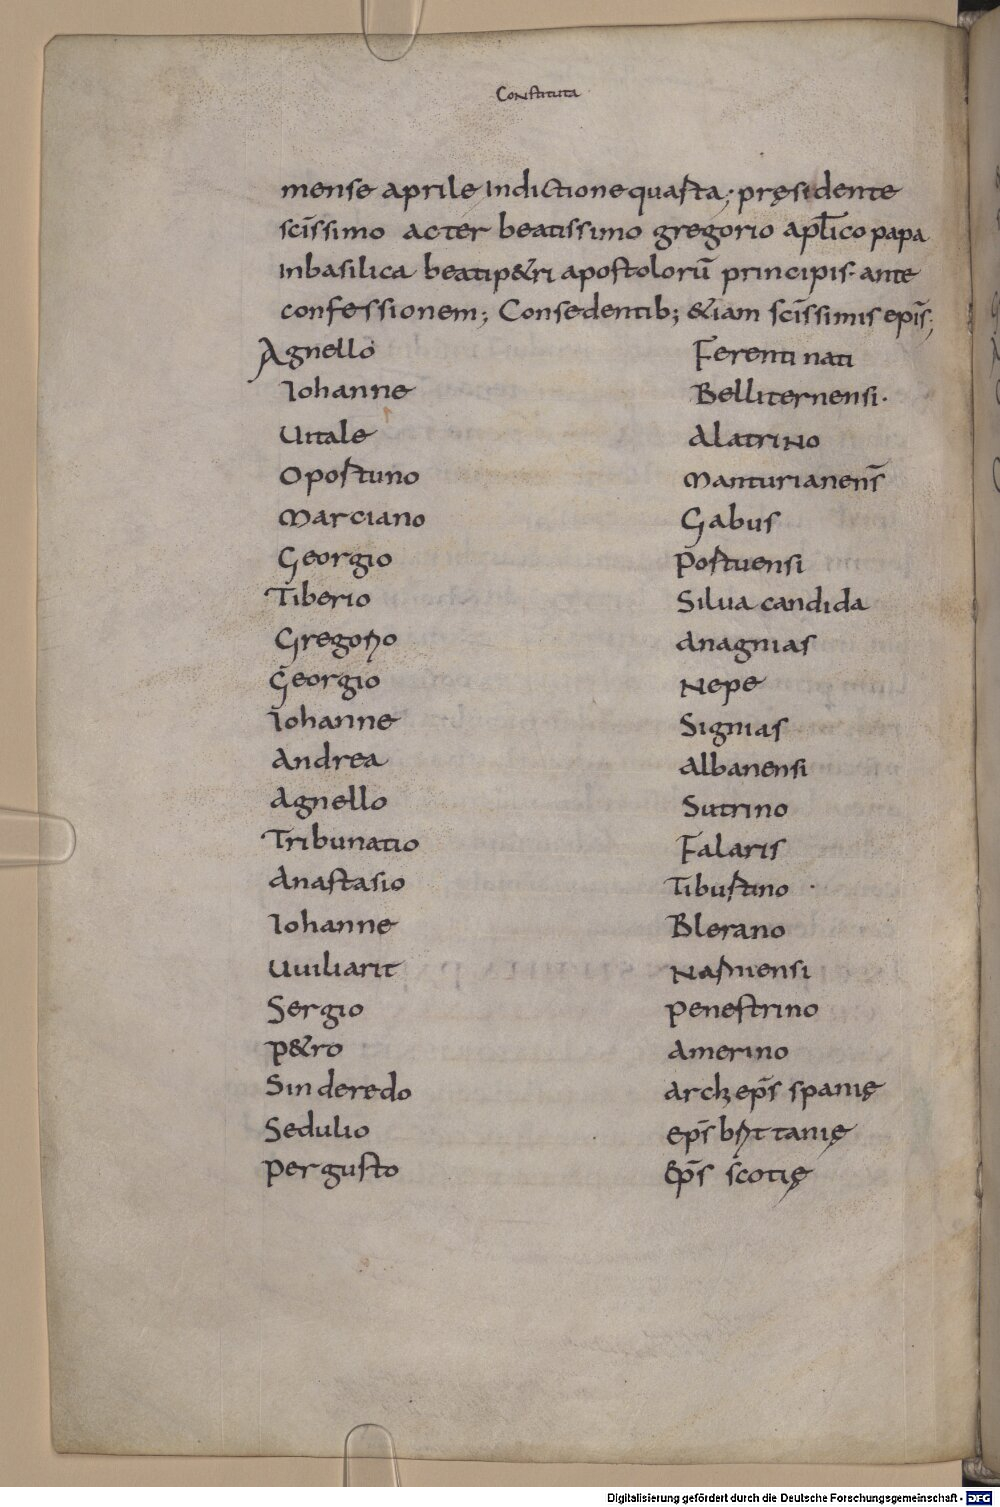 Constituta
mense aprile Indictione quarta; pręsidente
scīssimo ac ter beatissimo gregorio apl̄ico papa
Inbasilica beatip&ri apostolorū principis· ante
confessionem; Consedentib; &iam scīssimis epīs;
Agnello Ferentinati
Iohanne Belliternensi·
Uitale Alatrino
Oportuno Manturianens̄
Marciano Gabus
Georgio Portuensi
Tiberio Silua candida
Gregorio Anagnias
Georgio Nepe
Iohanne Signias
Andrea Albanensi
Agnello Sutrino
Tribunatio Falaris
Anastasio Tiburtino
Iohanne Blerano
Uuiliarit Narniensi
Sergio Penestrino
P&ro Amerino
Sinderedo Archeps̄ spanię
Sedulio eps̄ brittanię
Pergusto Eps̄ scotię
Digitalisierung gefördert durch die Deutsche Forschungsgemeinschaft - DFG